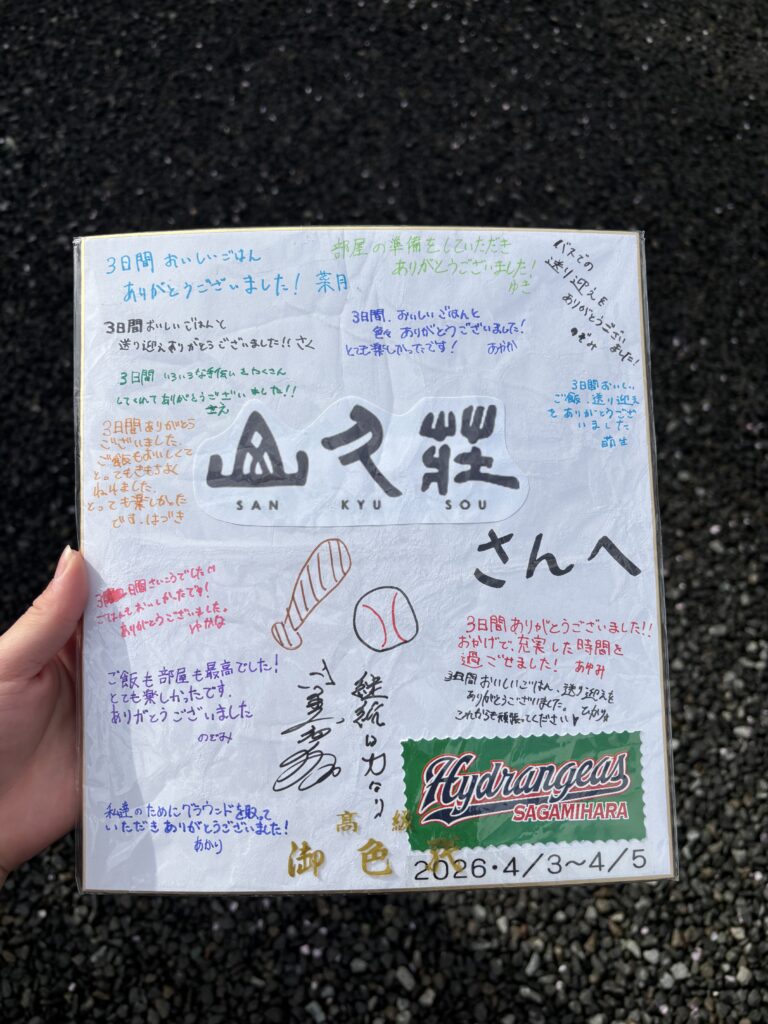 3日間 おいしいごはん
ありがとうございました! 菜月
部屋の準備をしていただき
ありがとうございました!
ゆき
バスでの
送り迎えを
ありがとうござい
ました!
のぞみ
3日間おいしいごはんと
送り迎えありがとうございました!! さく
3日間、おいしいごはんと
色々 ありがとうございました!
とても楽しかったです! あやか
3日間 いろいろな手伝いをたくさん
してくれてありがとうございました!!
さえ
3日間おいしい
ご飯、送り迎え
をありがとうござ
いました
萌生
3日間ありがとう
ございました
ご飯もおいしくて
とってもきもちよく
ねれました
とっても楽しかった
です。はづき
山久荘
SAN KYU SOU
さんへ
3日間さいこうでした
ごはんもおいしかったです!
ありがとうございました。
ゆかな
3日間ありがとうございました!!
おかげで、充実した時間を
過ごせました! あゆみ
ご飯も部屋も最高でした!
とても楽しかったです。
ありがとうございました
のぞみ
継続は力なり
3日間おいしいごはん、送り迎えを
ありがとうございました。
これからも頑張ってください♥
ひかりα
私達のためにグラウンドを取って
いただきありがとうございました!
あかり
Hydrangeas
SAGAMIHARA
高級
御色代
2026・4/3〜4/5